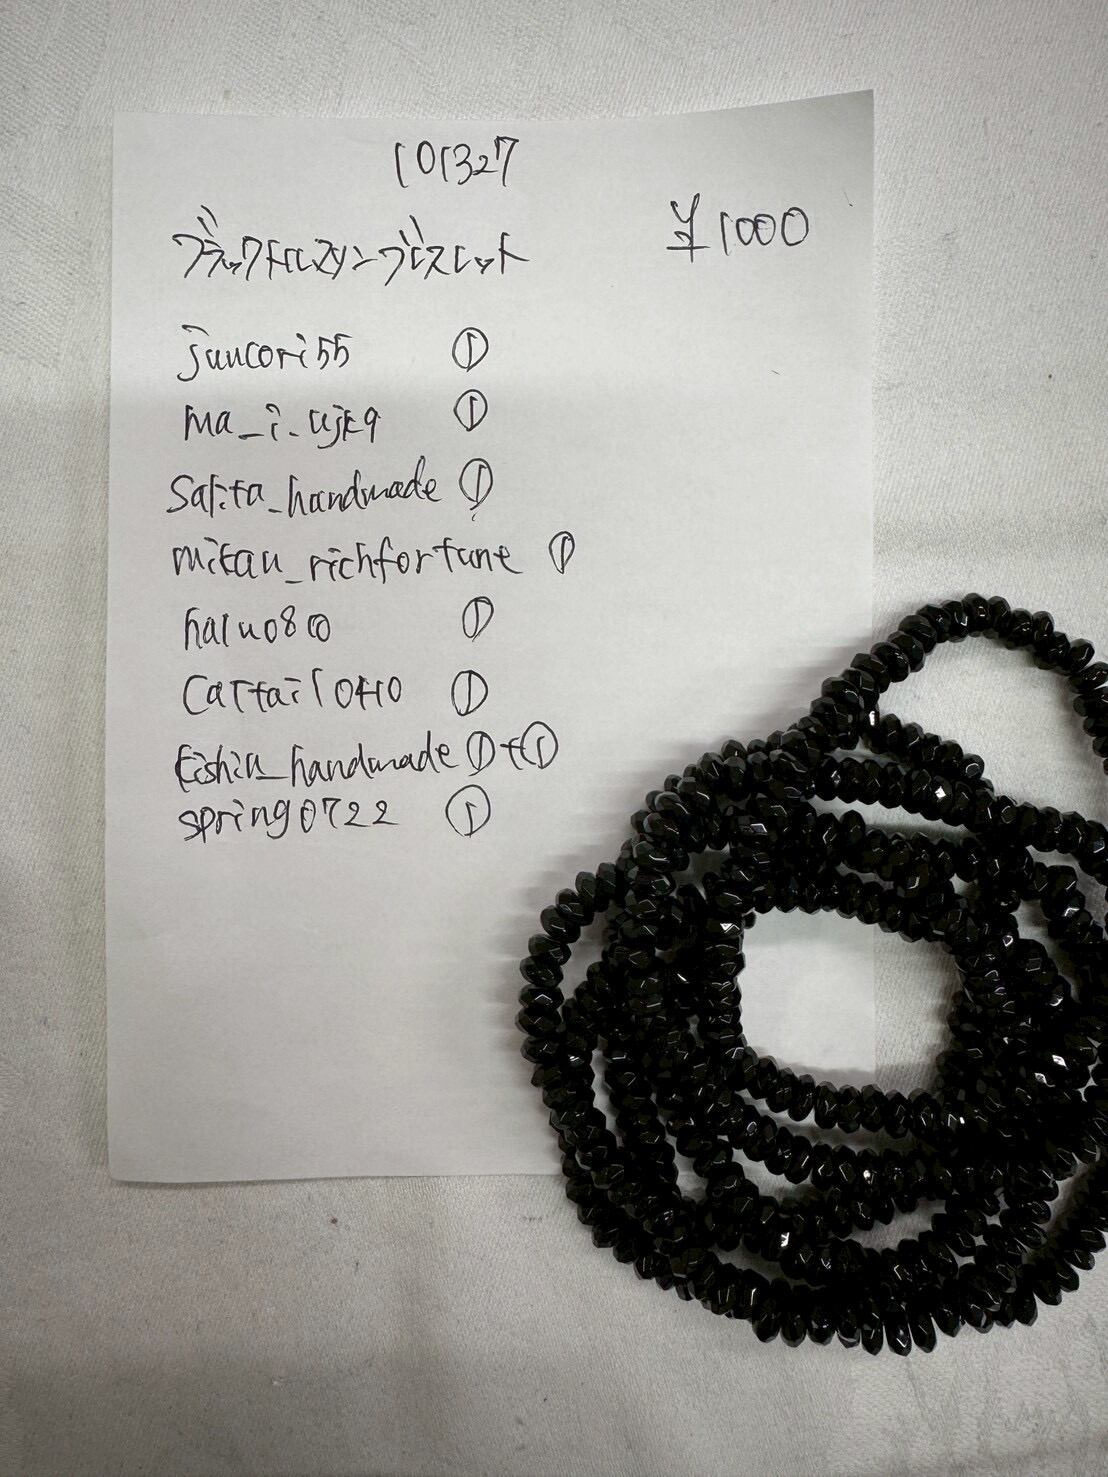 101327
¥1000
ブラックトルマリンブレスレット
juncori55 ①
ma_i_ujk9 ①
Sakita_handmade ①
mikan_richfortune ①
haluo80 ①
Cattail0410 ①
kishin_handmade ①+①
spring0722 ①